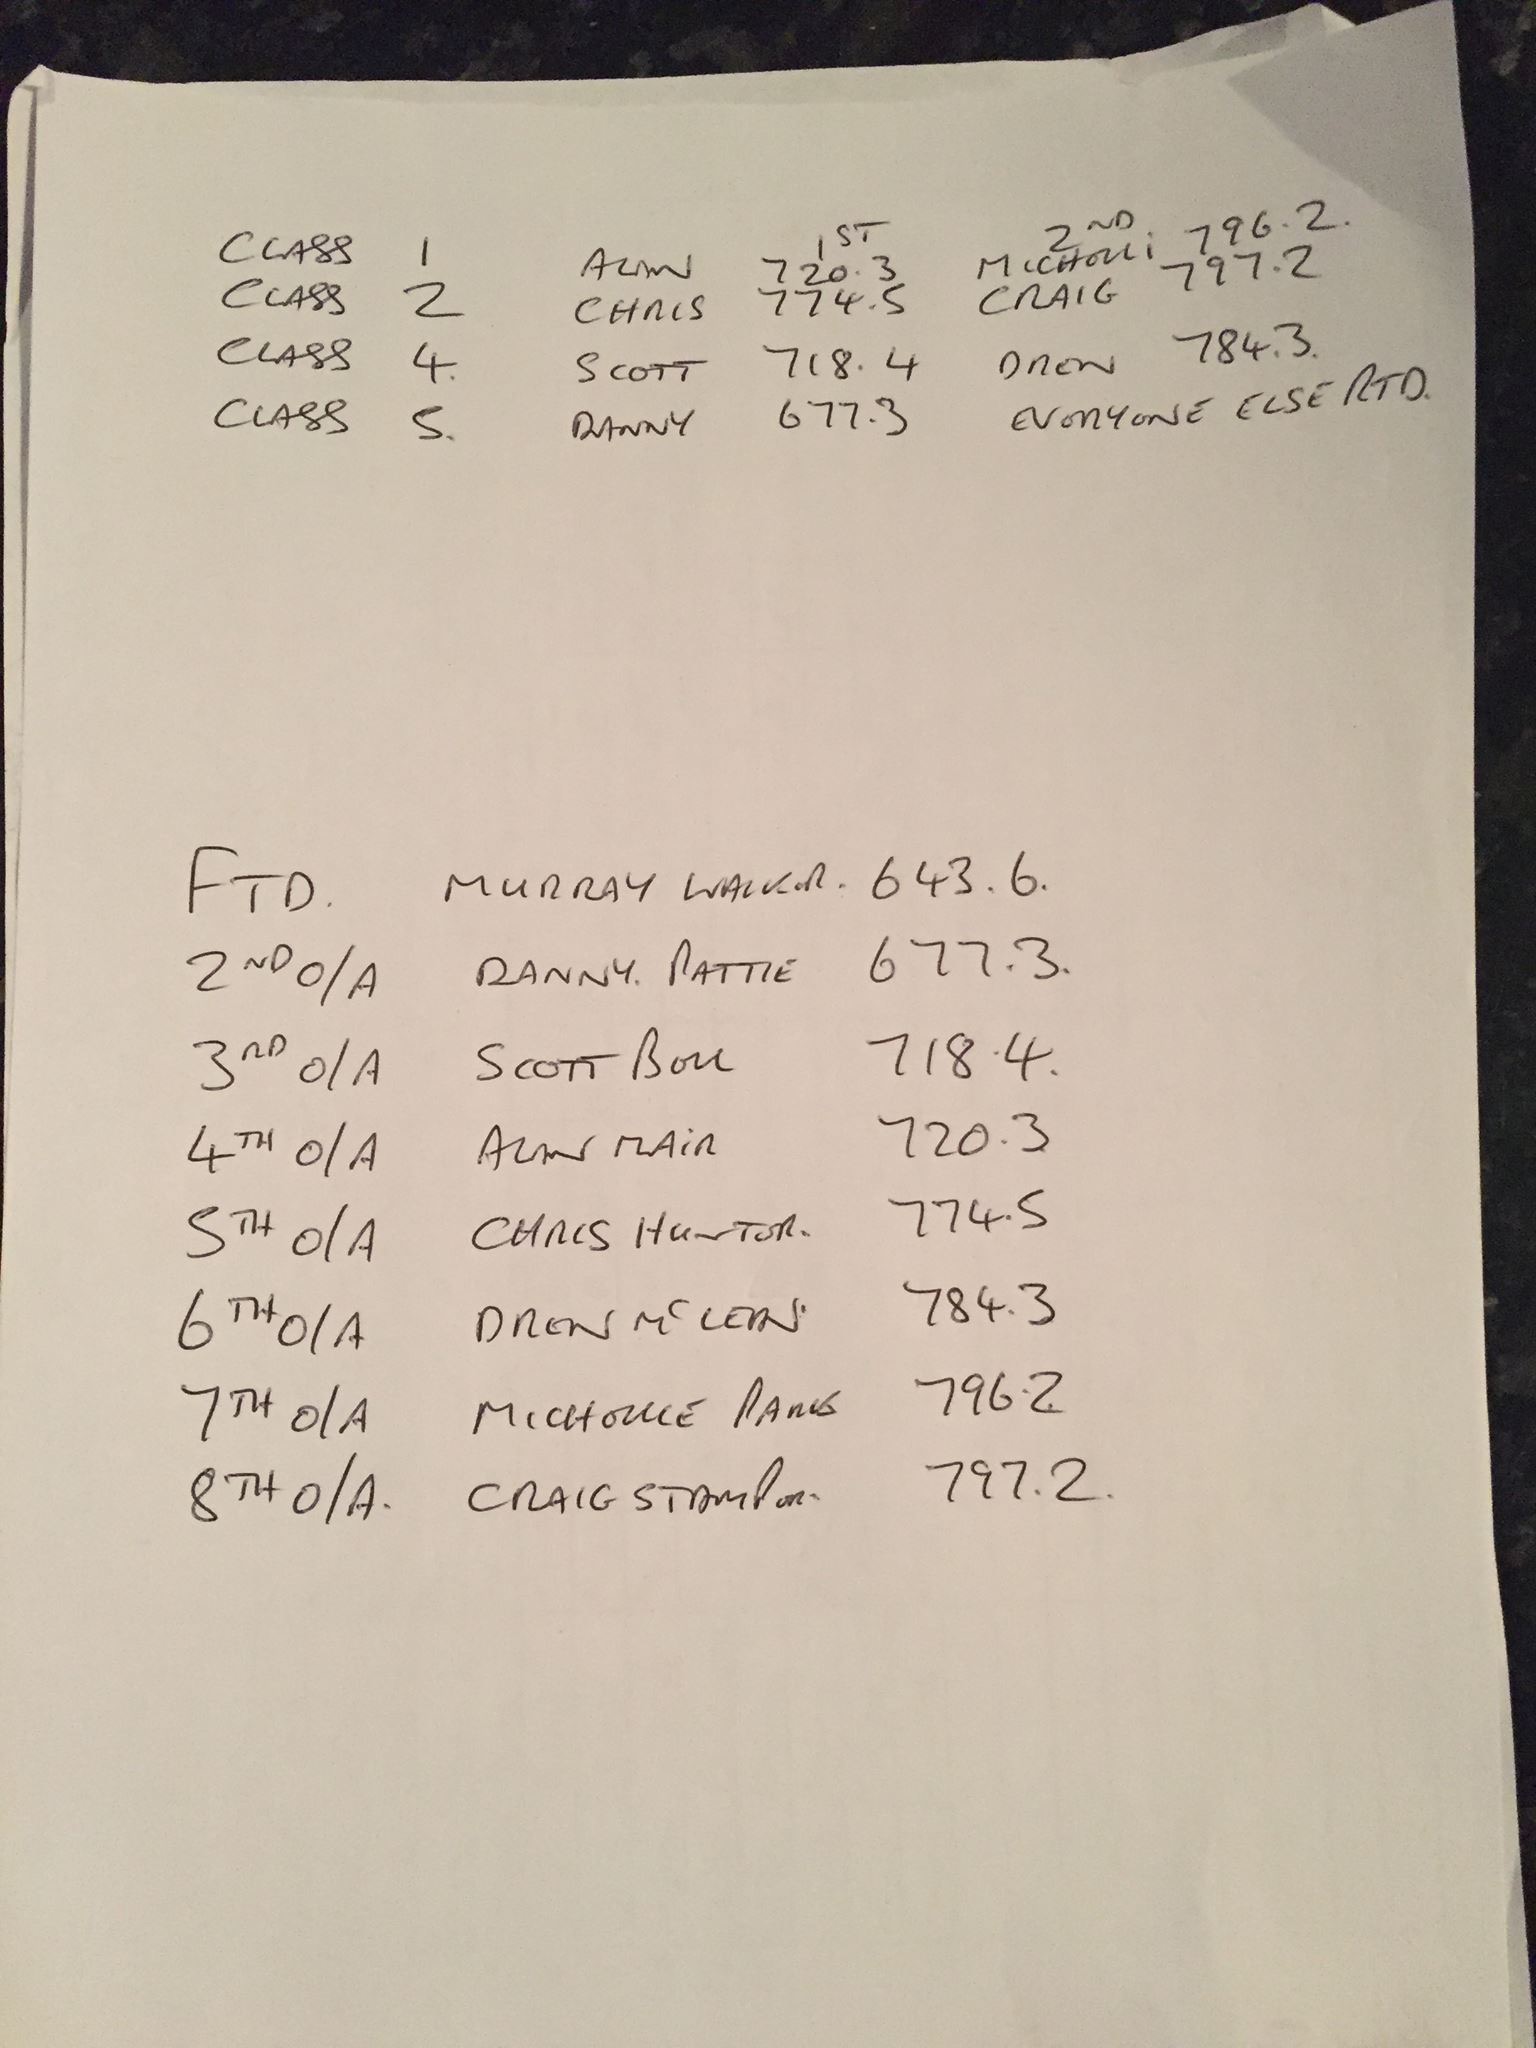 1ST 2ND
CLASS 1 ALAN 720.3 MICHELLE 796.2.
CLASS 2 CHRIS 774.5 CRAIG 797.2
CLASS 4. SCOTT 718.4 DREW 784.3.
CLASS 5. DANNY 677.3 EVERYONE ELSE RTD.
FTD. MURRAY WALKER. 643.6.
2ND O/A DANNY. PATTIE 677.3.
3RD O/A SCOTT BELL 718.4.
4TH O/A ALAN MAIR 720.3
5TH O/A CHRIS HUNTER. 774.5
6TH O/A DREW McLEAN 784.3
7TH O/A MICHELLE 796.2
8TH O/A. CRAIG STAMPER. 797.2.